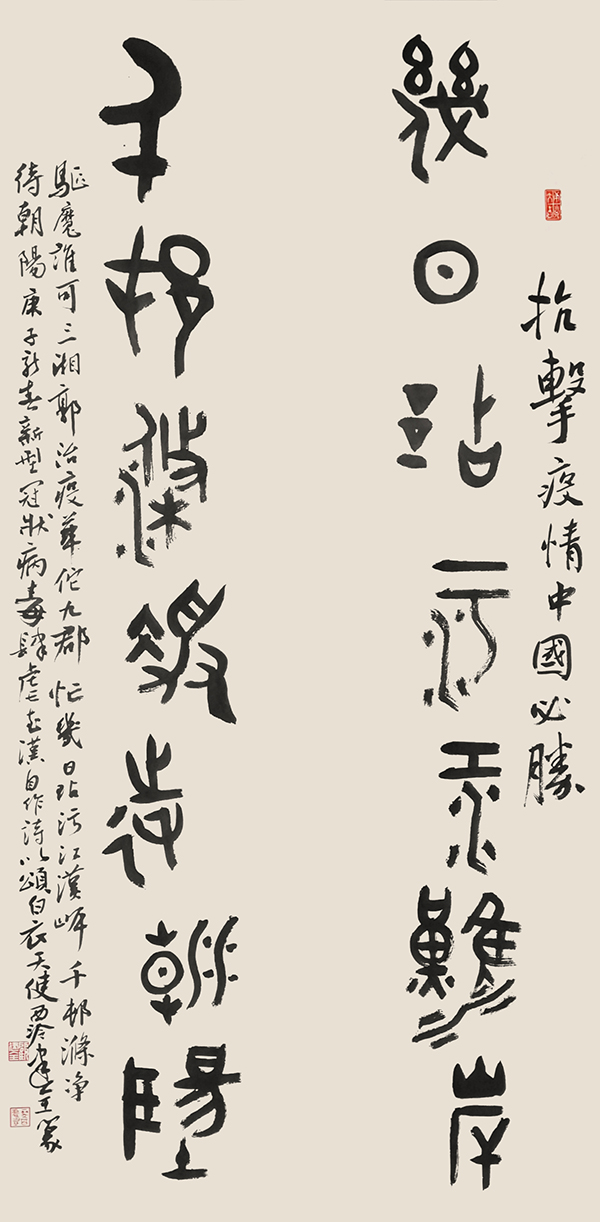 抗擊疫情中國必勝
幾日玷污江漢岸
千邨滌淨待朝陽
驅魔誰可三湘郭治疫華佗九郡忙幾日玷污江漢岸千邨滌净
待朝陽庚子新春新型冠狀病毒肆虐武漢自作詩以頌白衣天使西泠篆